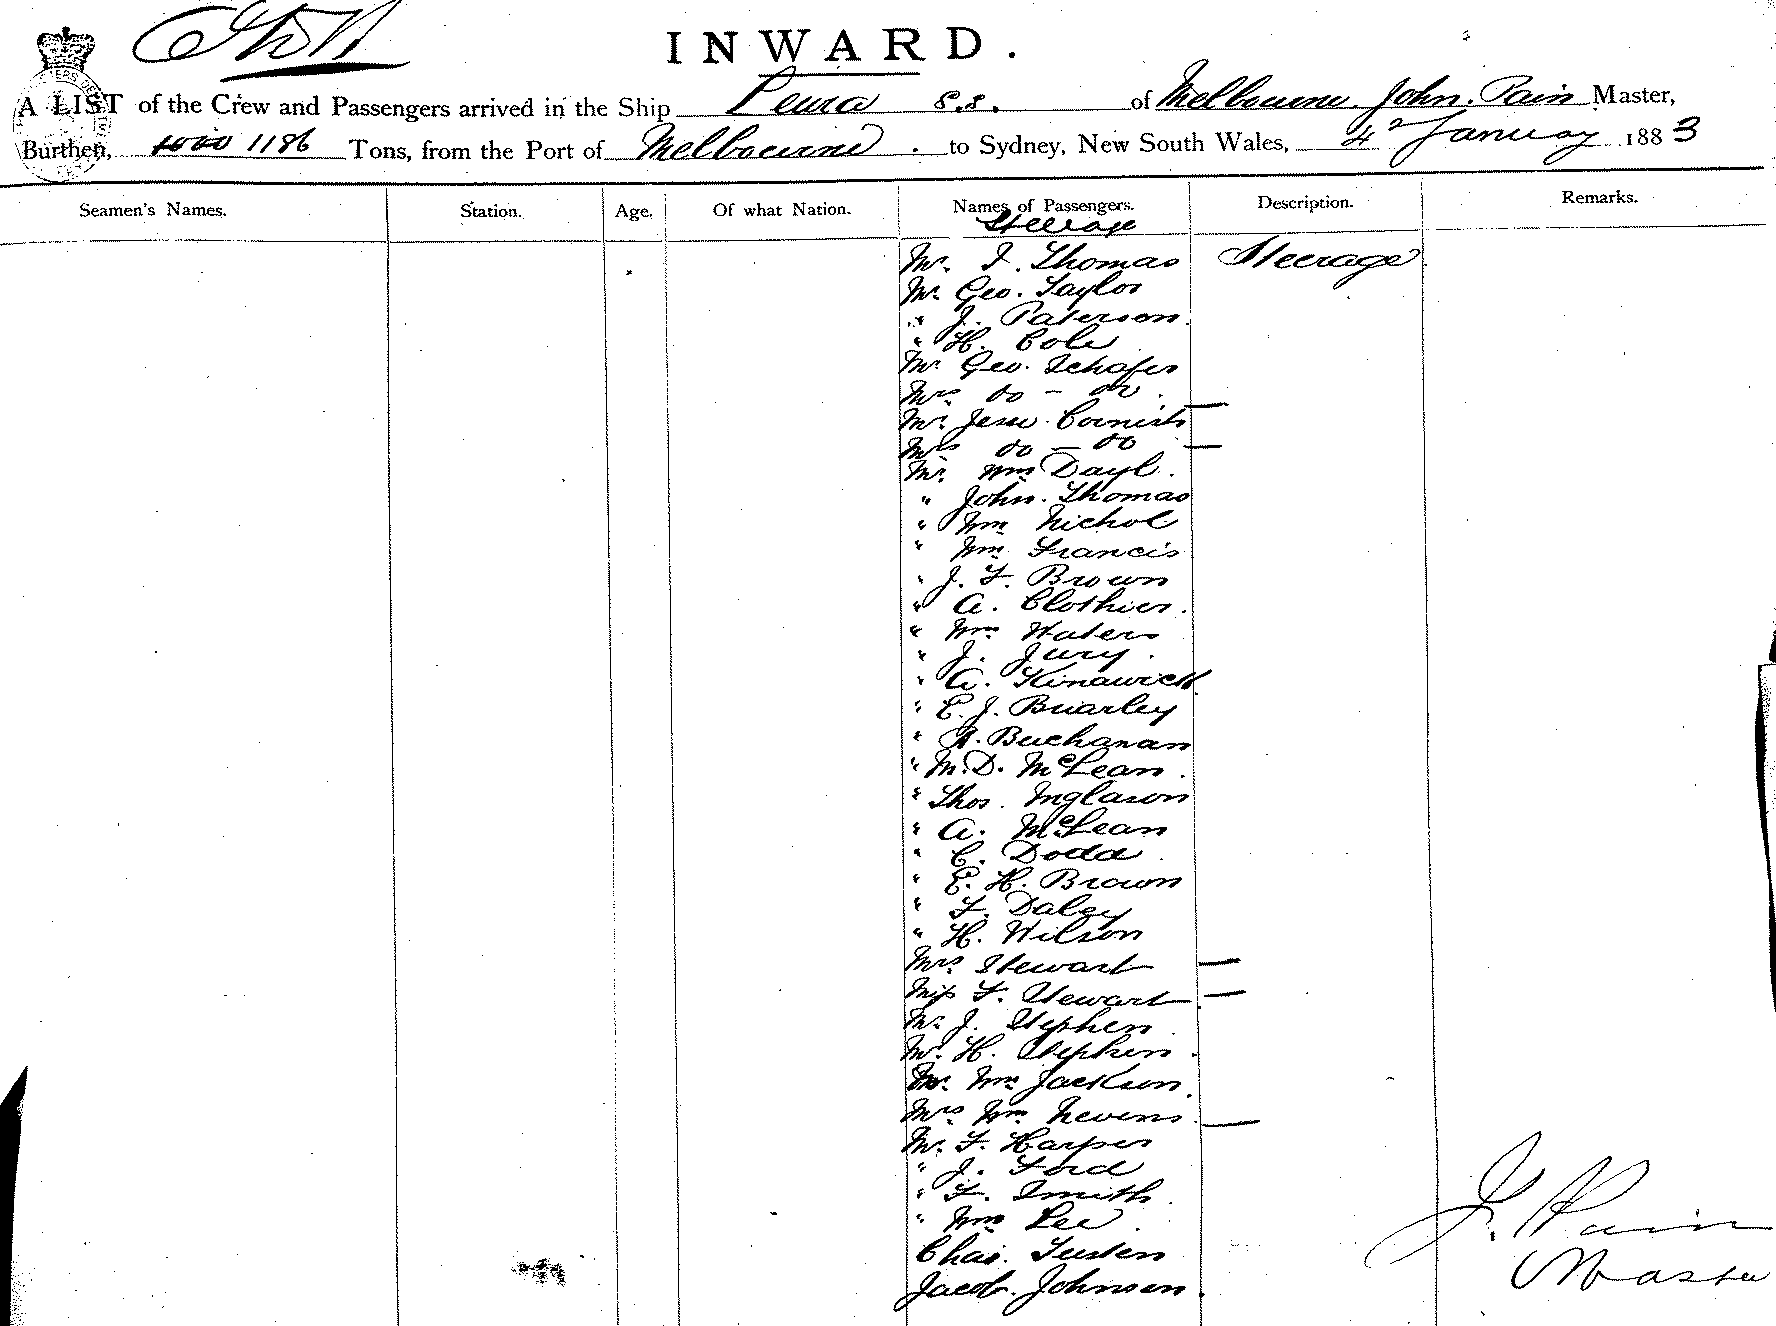 INWARD.
A LIST of the Crew and Passengers arrived in the Ship Leura s.s. of Melbourne John. Pain Master,
Burthen, 1186 Tons, from the Port of Melbourne . to Sydney, New South Wales, 4 January 1883
Seamen's Names. Station. Age. Of what Nation. Names of Passengers. Description. Remarks.
Steerage
Mr. J. Thomas Steerage
Mr. Geo. Taylor
" J. Paterson.
" H. Cole
Mr. Geo. Schafer
Mrs do - do.
Mr. Jesse Cornish —
Mrs do - do —
Mr. Wm Dayl.
" John. Thomas
" Wm Nichol
" Wm Francis
" J. F. Brown
" A. Clothier.
" Wm Waters
" J. Jury.
" A.
" E. J. Buarley
" A. Buchanan
" M. D. McLean.
" Thos. Inglason
" A. McLean
" C. Dodd.
" E. H. Brown
" F. Daley
" H. Wilson
Mrs Stewart —
Miss F. Stewart —
Mr. J. Stephen
Mr. H. Stephen.
Mr. Wm Jackson.
Mrs Wm Nevens. —
Mr. F. Harper
" J. Ford
" F. Smith.
" Wm Lee.
Chas.
Jacob. Johnson.
J. Pain
Master